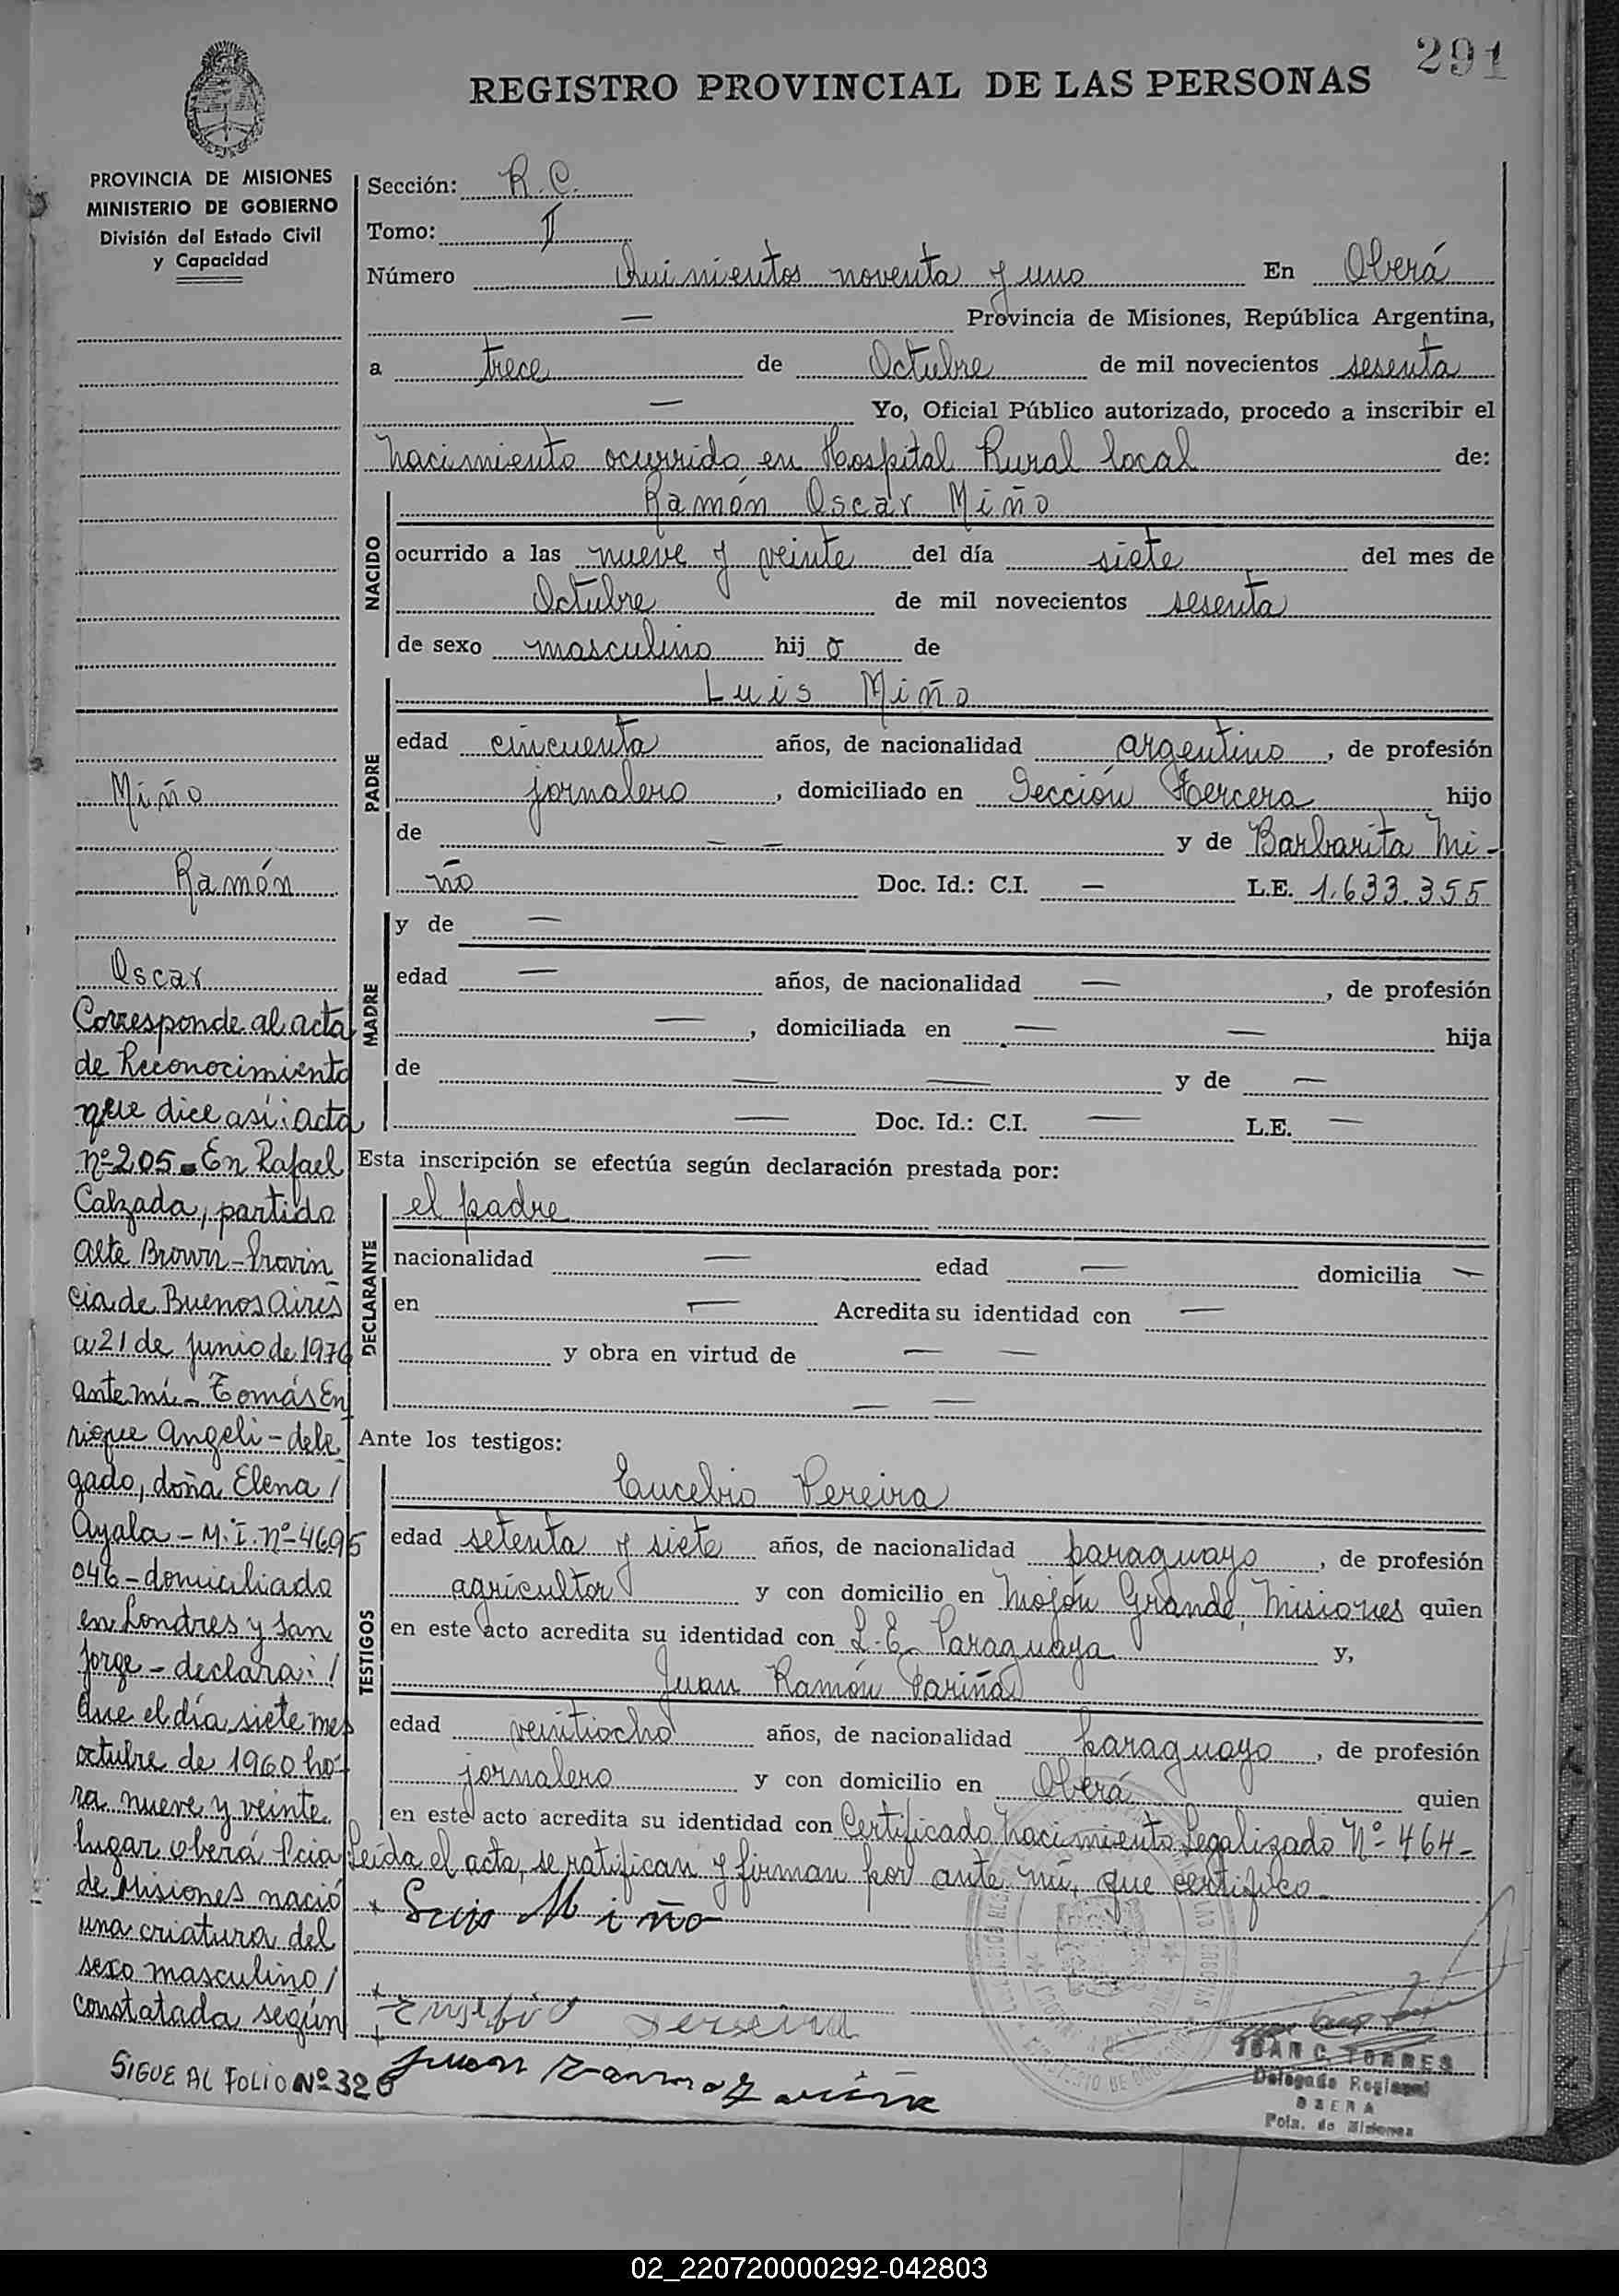 291
REGISTRO PROVINCIAL DE LAS PERSONAS
PROVINCIA DE MISIONES
MINISTERIO DE GOBIERNO
División del Estado Civil
y Capacidad
Miño
Ramón
Oscar
Corresponde al acta
de Reconocimiento
que dice así: acta
nº 205 - En Rafael
Calzada, partido
Alte Brown - Provin
cia de Buenos Aires
a 21 de junio de 1976
ante mí - Tomás En
rique Angeli - dele
gado, doña Elena /
Ayala - M.I. Nº 4695
046 - domiciliado
en Londres y San
Jorge - declara: /
Que el día siete mes
octubre de 1960 ho-
ra nueve y veinte
lugar Oberá Pcia
de Misiones nació
una criatura del
sexo masculino /
constatada según
SIGUE AL FOLIO Nº 320
Sección: R.C.
Tomo: II
Número Quinientos noventa y uno En Oberá
— Provincia de Misiones, República Argentina,
a trece de Octubre de mil novecientos sesenta
— Yo, Oficial Público autorizado, procedo a inscribir el
nacimiento ocurrido en Hospital Rural local de:
NACIDO
Ramón Oscar Miño
ocurrido a las nueve y veinte del día siete del mes de
Octubre de mil novecientos sesenta
de sexo masculino hij o de
PADRE
Luis Miño
edad cincuenta años, de nacionalidad argentino, de profesión
jornalero, domiciliado en Sección Tercera hijo
de — — y de Barbarita Mi-
ño Doc. Id.: C.I. — L.E. 1.633.355
MADRE
y de —
edad — años, de nacionalidad —, de profesión
—, domiciliada en — — hija
de — — y de —
— Doc. Id.: C.I. — L.E. —
Esta inscripción se efectúa según declaración prestada por:
DECLARANTE
el padre
nacionalidad — edad — domicilia —
en — Acredita su identidad con —
y obra en virtud de — —
— —
Ante los testigos:
TESTIGOS
Eucebio Pereira
edad setenta y siete años, de nacionalidad paraguayo, de profesión
agricultor y con domicilio en Mojón Grande, Misiones quien
en este acto acredita su identidad con L.E. Paraguaya y,
Juan Ramón Fariña
edad veintiocho años, de nacionalidad paraguayo, de profesión
jornalero y con domicilio en Oberá quien
en este acto acredita su identidad con Certificado nacimiento legalizado Nº 464-
Leída el acta, se ratifican y firman por ante mí, que certifico
Luis Miño
Eusebio Pereira
Juan Ramon Fariña
JUAN C. TORRES
Delegado Regional
OBERA
Pcia. de Misiones
02_220720000292-042803